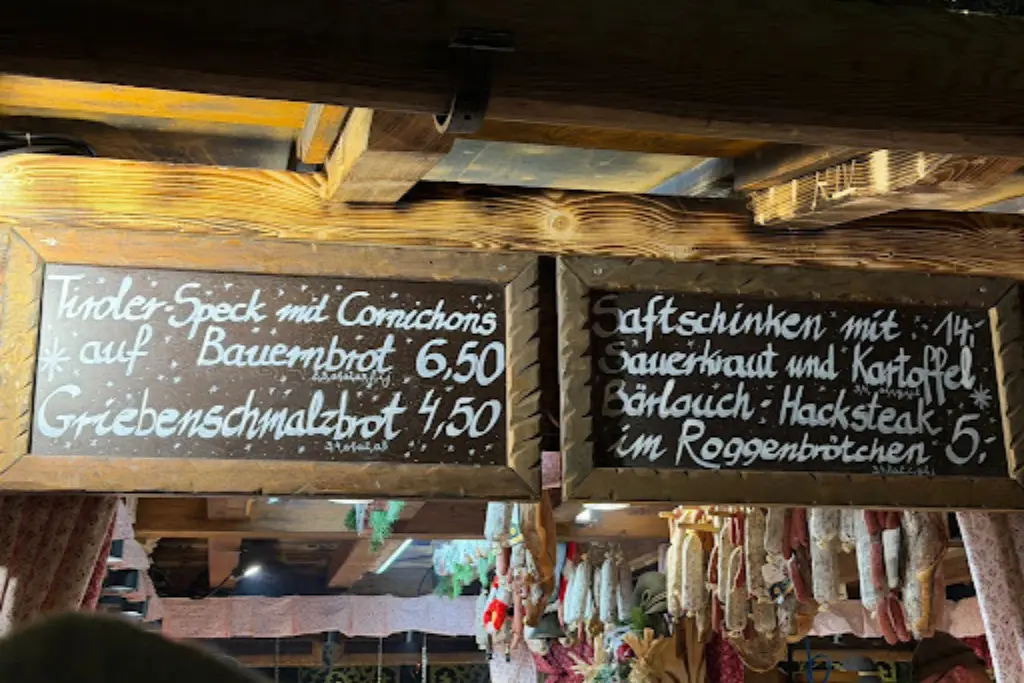 Tiroler-Speck mit Cornichons
auf Bauernbrot 6,50
Griebenschmalzbrot 4,50
Saftschinken mit 14,-
Sauerkraut und Kartoffel
Bärlauch-Hacksteak
im Roggenbrötchen 5,-